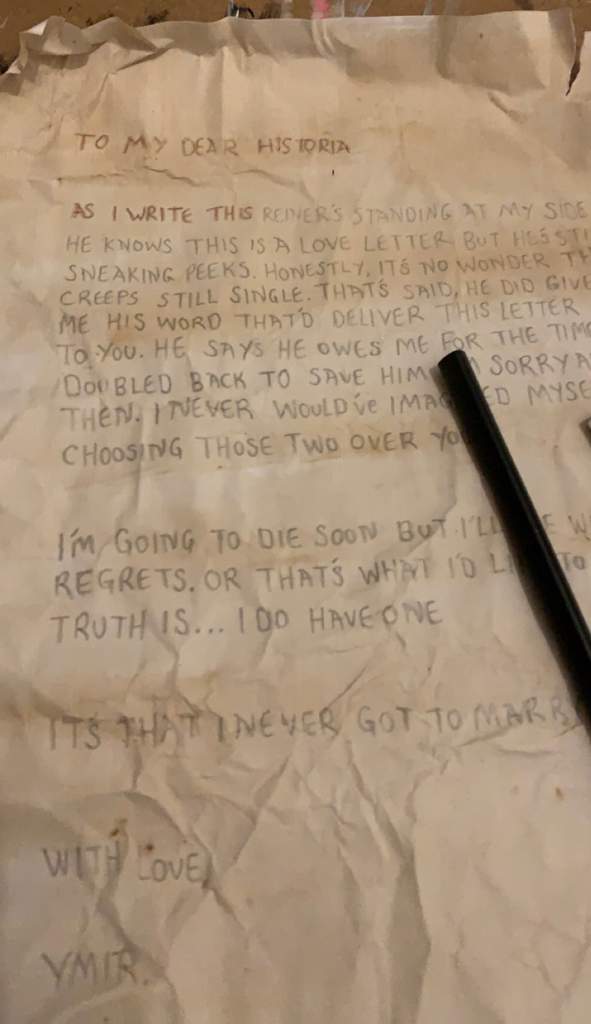 TO MY DEAR HISTORIA
AS I WRITE THIS REINER'S STANDING AT MY SIDE
HE KNOWS THIS IS A LOVE LETTER BUT HE'S
SNEAKING PEEKS. HONESTLY, IT'S NO WONDER
CREEPS STILL SINGLE. THAT'S SAID, HE DID GIVE
ME HIS WORD THAT'D DELIVER THIS LETTER
TO YOU. HE SAYS HE OWES ME FOR THE TIME
DOUBLED BACK TO SAVE HIM SORRY
THEN. I NEVER WOULD'VE
CHOOSING THOSE TWO OVER
I'M GOING TO DIE SOON BUT I'LL
REGRETS. OR THAT'S WHAT I'D TO
TRUTH IS... I DO HAVE ONE
IT'S THAT I NEVER GOT TO
WITH LOVE,
YMIR.